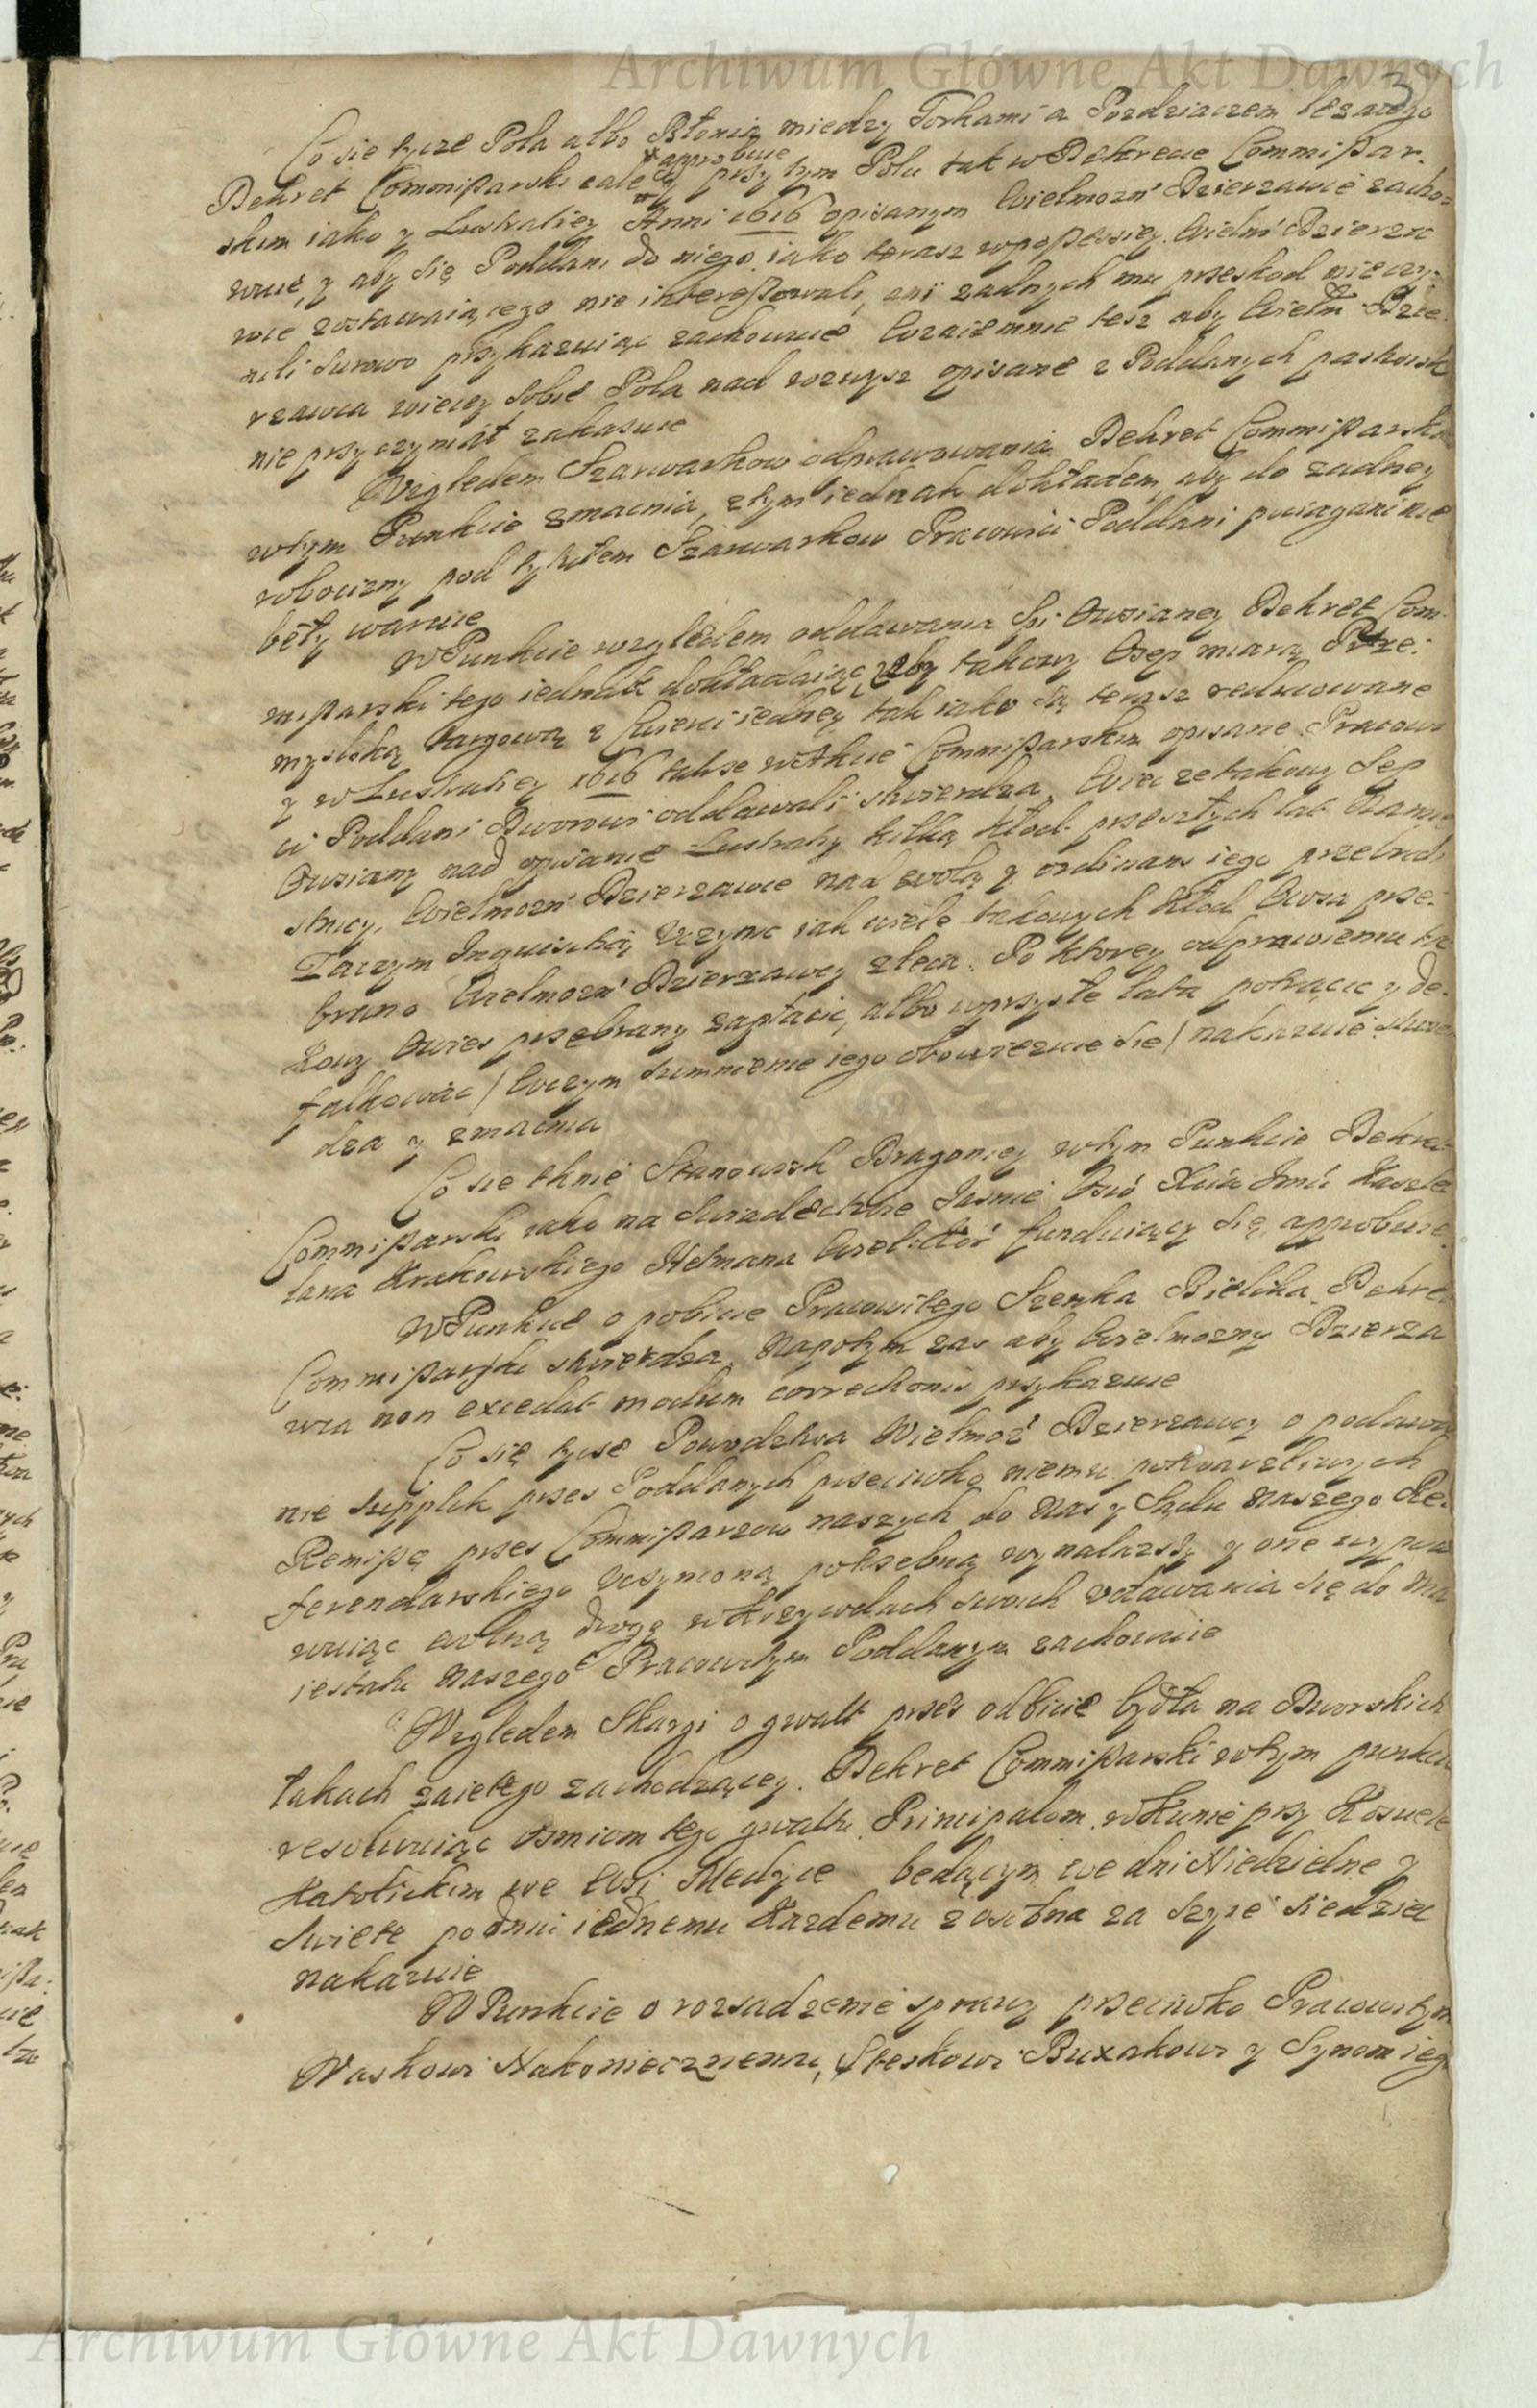 Archiwum Główne Akt Dawnych
3
Co się tycze Pola albo Błonia między Torkami a Pozdziaczem lezącego
approbuie
Dekret Commissarski cale y przy tym Polu tak w Dekrecie Commissar-
skim iako y Lustratiey Anni 1616 opisanym Wielmozn Dzierzawcę zacho-
wuie, y aby się Poddani do niego iako teraz w possessiey Wielm Dzierza-
wce zostawaiącego nie interessowali, ani zadnych mu przeskod nie czy-
nili surowo przykazuiąc zachowuie Wzaiemnie tesz aby Wielm Dzie-
rzawca wiecey sobie Pola nad wzwysz opisane z Poddanych
nie przyczyniał zakazuie
Względem Szarwarkow odprawowania Dekret Commissarski
w tym Punkcie zmacnia, z tym iednak dokładem, aby do zadney
robocizny pod tytułem Szarwarkow Pracowici Poddani pociągani nie
beły waruie
W Punkcie względem oddawania Owsianey Dekret Com-
missarski tego iednak dokładaiąc, zeby takowy Osep miarą Prze-
myslską targową z Cwierci iedney tak iako są teraz redukowane
y w Lustratiey 1616 także w Akcie Commissarskim opisane Pracowi-
ci Poddani Dworowi oddawali stwierdza, Wiec ze takowy Sep
Owsiany nad opisanie Lustraty kilką kłod przeszłych lat Namie-
stnicy, Wielmozn Dzierzawce nad wolą y ordinans iego przebrali
Zaczym Inquisitią uczynic iak wiele takowych kłod Owsa prze-
brano Wielmozn Dzierzawcy zleca. Po ktorey odprawieniu ta-
kowy Owies przebrany zapłacic, albo w przyszłe lata potrącic y de-
falkowac / w czym sumnienie iego obowiezuie sie / nakazuie stwier-
dza y zmacnia
Co sie tknie Stanowisk Dragoniey w tym Punkcie Dekret
Commissarski iako na swiadectwie Jasnie Osw Xcia Jmci Kaszte-
lana Krakowskiego Hetmana Wiel: Kor funduiący się, approbuie
W Punkcie o pobicie Pracowitego Szenka Bielika, Dekret
Commissarski stwierdza, Napotym zas aby Wielmozny Dzierza-
wca non excedat modum correctionis przykazuie
Co się tycze Powodztwa Wielmoz Dzierzawcy o podawa-
nie supplik przes Poddanych przeciwko niemu potwarzliwych
Remissę przes Commissarzow naszych do Nas y Sądu Naszego Re-
ferendarskiego uczynioną potrzebną wynalazszy y one
wuiąc wolną drogę w krzywdach swoich udawania się do Ma-
iestatu Naszego Pracowitym Poddanym zachowuie
Względem Skargi o gwałt przes odbicie bydła na Dworskich
łakach zaietego zachodzącey. Dekret Commissarski w tym punkcie
resolwuiąc osmiom tego gwałtu Principałom, w Kunie przy Kosciele
Katolickim we Wsi Medyce będącym we dni Niedzielne y
Swięte po dniu iednemu kazdemu z osobna za szyię siedziec
nakazuie
W Punkcie o rozsadzenie sprawy przeciwko Pracowitym
Waskowi Nakoniecznemu, Steskowi Buxakowi y Synom iego
Archiwum Główne Akt Dawnych